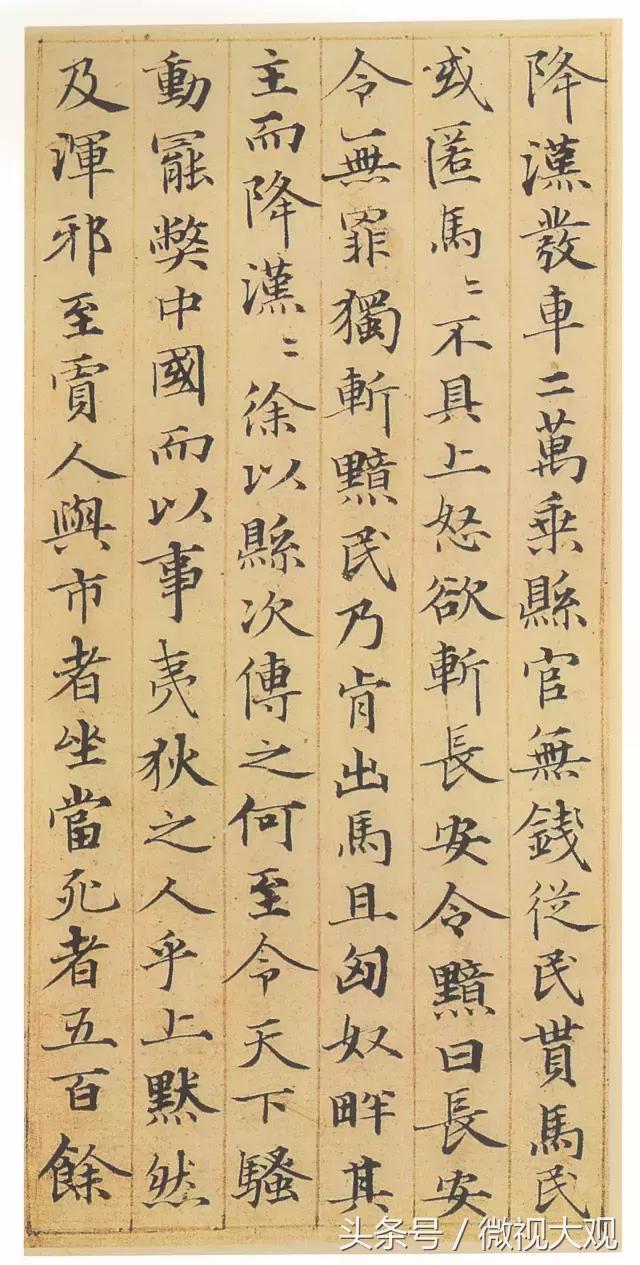 降漢發車二萬乘縣官無錢從民貰馬民
或匿馬〻不具上怒欲斬長安令黯曰長安
令無罪獨斬黯民乃肯出馬且匈奴畔其
主而降漢〻徐以縣次傳之何至令天下騷
動罷弊中國而以事夷狄之人乎上默然
及渾邪至賈人與市者坐當死者五百餘
头条号 / 微视大观